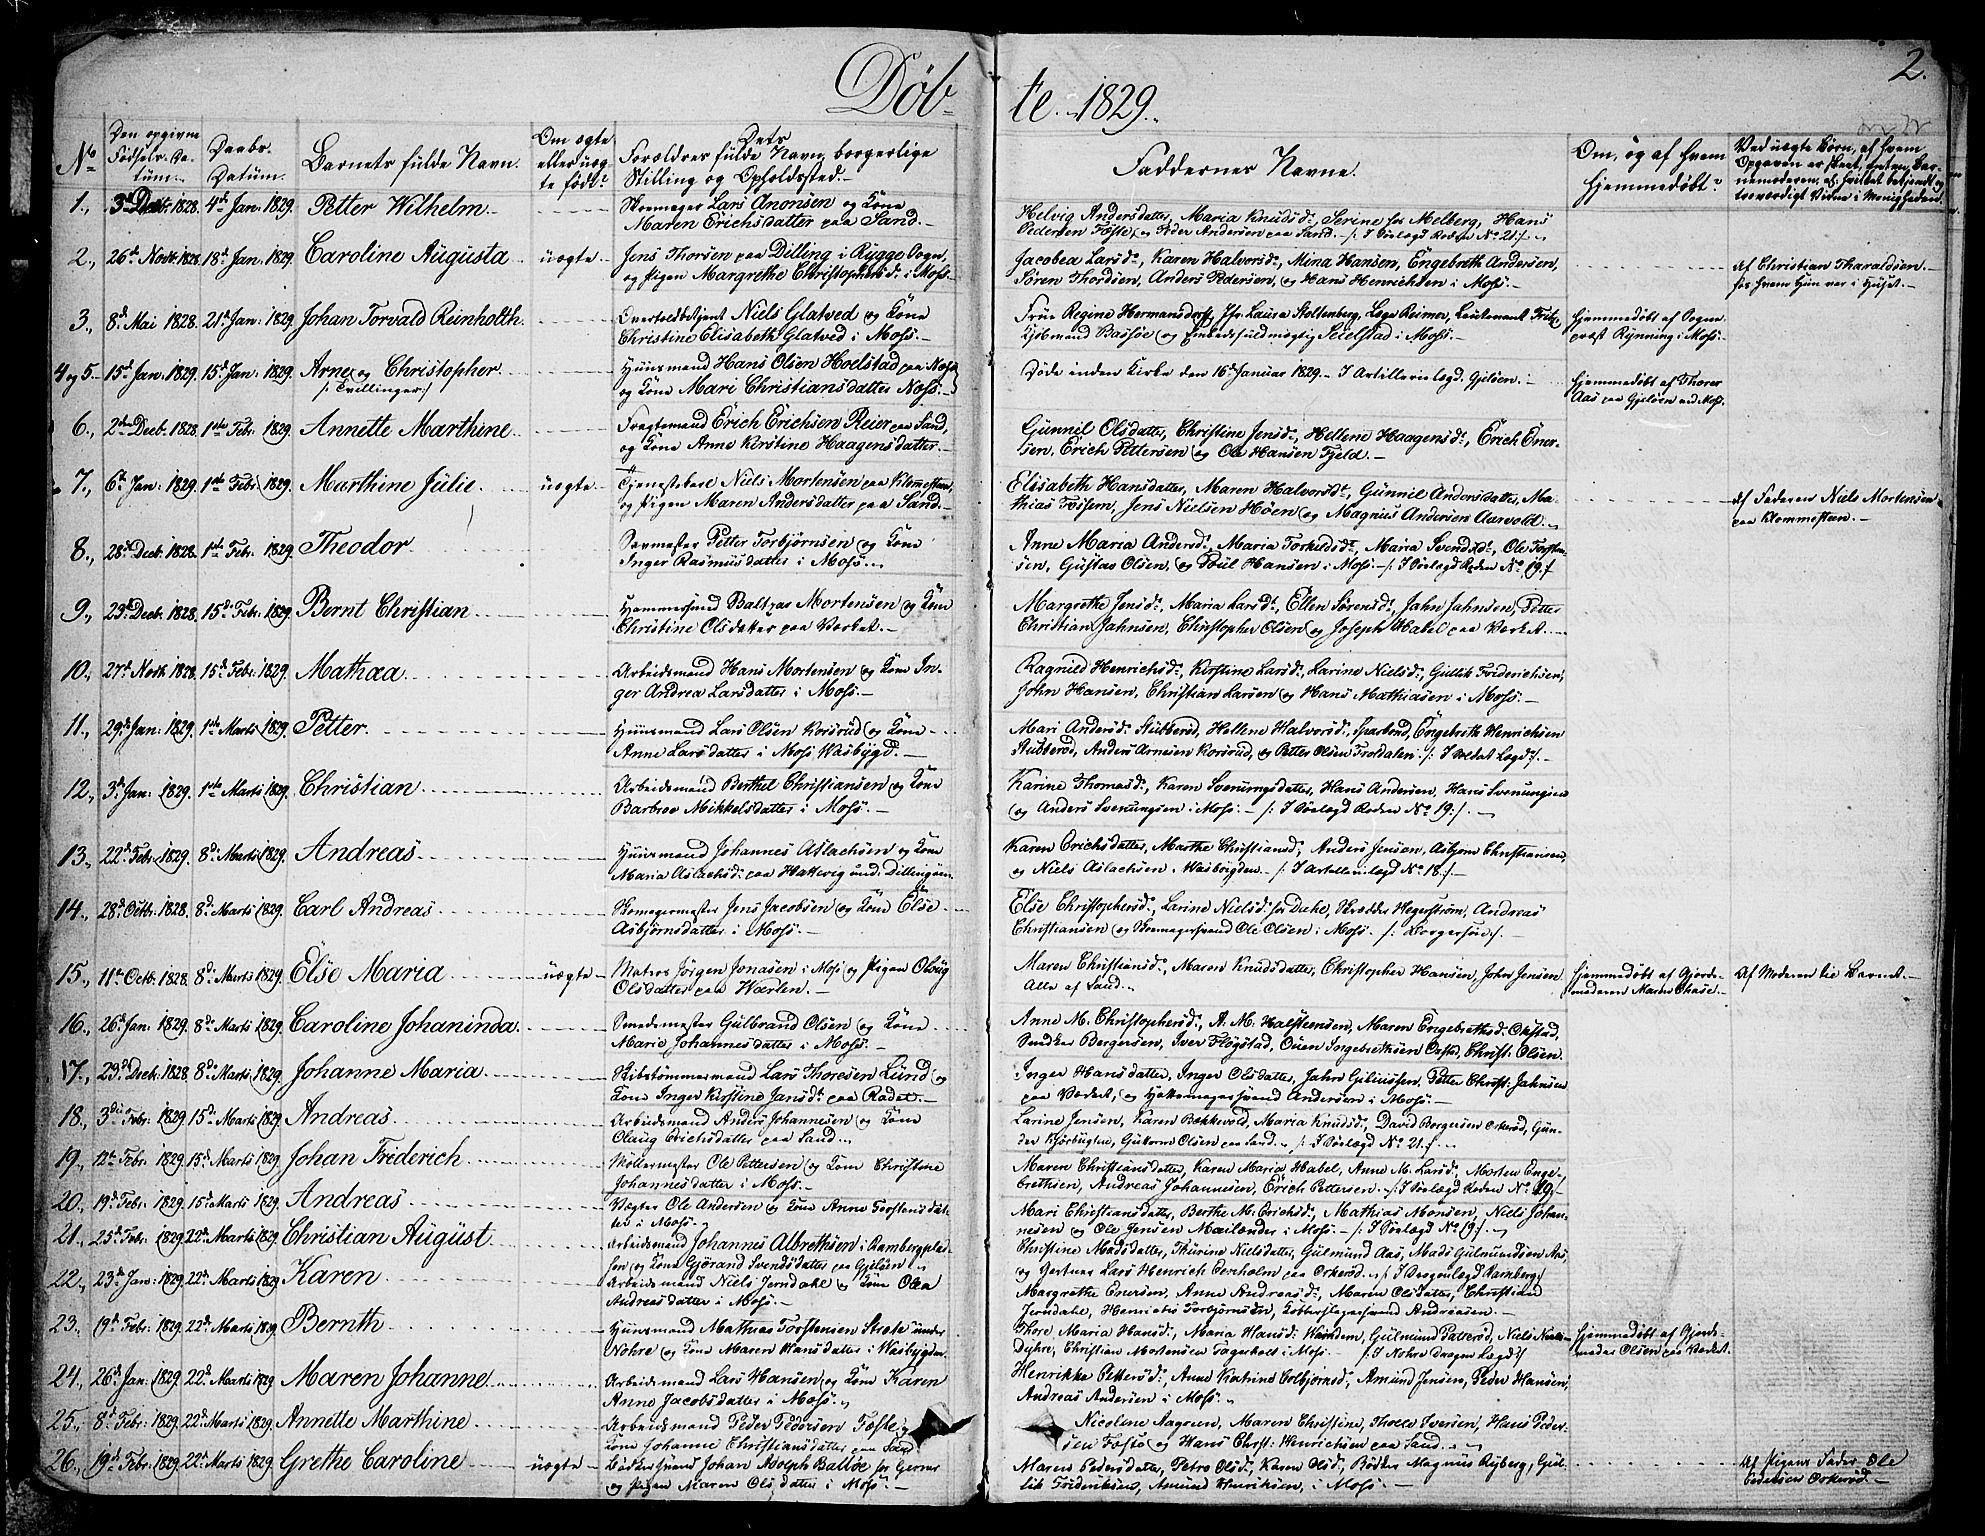 Døb-
te 1829.
2.
No
Den opgivne Fødsels-Datum.
Daabs-Datum.
Barnets fulde Navn.
Om ægte eller uægte født?
Dets Forældres fulde Navn, borgerlige Stilling og Opholdssted.
Faddernes Navne.
Om, og af hvem hjemmedøbt?
Ved uægte Børn, af hvem Opgaven er skeet, enten Barnemoderen,
1., 3d Decbr. 1828. 4d Jan: 1829. Petter Wilhelm.
Skomager Lars Anonsen og Kone
Maren Erichsdatter paa Sand.
Helvig Andersdatter, Maria Knudsd., Serine Melberg, Hans
Pedersen Føste, og Peder Andersen paa Sand. /: I Søelægd Roden No 21:/
2., 26d Novbr. 1828. 18d Jan: 1829. Caroline Augusta uægte
Jens Thorsen paa Dilling i Rygge Sogn
og Pigen Margrethe Christophersd. i Moss.
Jacobea Larsd., Karen Halvorsd., Mina Hansen, Engebreth Andersen,
Søren Thordsen, Anders Pedersen, og Hans Henrichsen i Moss.
Af Christian Tharaldsen
hos hvem Hun var i Huset.
3., 8d Mai 1828. 21d Jan: 1829. Johan Torvald Reinholth.
Overtoldbetjent Niels Glatved og Kone
Christine Elisabeth Glatved i Moss.
Frue Regine Hermansdorf, Jfr. Laura Stoltenberg, Læge Reimer, Lieutenant Fritz,
Kjøbmand Baasøe og Seielstad i Moss.
hjemmedøbt af Sogne-
præst Rynning i Moss.
4 og 5. 15d Jan: 1829. 15d Jan: 1829. Arne og Christopher
/: Tvillinger:/
Huusmand Hans Olsen Hoelstad paa Næss
og Kone Mari Christiansdatter Næss.
Døde inden Kirke den 16d Januar 1829. I Artillerielægd. Gjeløen.
hjemmedøbt af Thorer
Aas paa Gjeløen ved Moss.
6., 2den Decb. 1828. 1ste Febr. 1829. Annette Marthine
Fragtemand Erich Erichsen Reier paa Sand,
og Kone Anne Kirstine Haagensdatter.
Gunnil Olsdatter, Christine Jensd., Hellene Haagensd., Erich Ener-
sen, Erich Pettersen og Ole Hansen Fjeld.
7., 6te Jan: 1829. 1ste Febr. 1829. Marthine Julie uægte
Tjenestekarl Niels Mortensen paa Klommesteen,
og Pigen Maren Andersdatter paa Sand.
Elisabeth Hansdatter, Maren Halvorsd., Gunnil Andersdatter, Ma-
thias Fossem, Jens Nielsen Høen og Magnus Andersen Aarvold.
Af Faderen Niels Mortensen
paa Klommesteen.
8., 28d Decb. 1828. 1ste Febr. 1829. Theodor
Savmester Petter Torbjørnsen og Kone
Inger Rasmusdatter i Moss.
Anne Maria Andersd., Maria Torkildsd., Maria Svendsd., Ole Torsten-
sen, Gustav Olsen, og Poul Hansen i Moss. /: I Søelægd Roden No 19:/
9., 29d Decb. 1828. 15d Febr. 1829. Bernt Christian
Hammersmed Baltzar Mortensen og Kone
Christine Olsdatter paa Værket.
Margrethe Jensd., Maria Larsd., Ellen Sørensd., Jahn Jahnsen, Petter
Christian Jahnsen, Christopher Olsen og Joseph Habel paa Værket.
10., 27d Novb. 1828. 15d Febr. 1829. Mathæa
Arbeidsmand Hans Mortensen og Kone In-
ger Andrea Larsdatter i Moss.
Ragnild Henrichsd., Kirstine Larsd., Larine Nielsd., Gullik Friderichsen,
John Hansen, Christian Larsen og Hans Mathiasen i Moss.
11., 29d Jan: 1829. 1ste Marts 1829. Petter
Huusmand Lars Olsen Korsrud og Kone
Anne Larsdatter i Moss Wasbygd.
Mari Andersd. Stubberød, Hellene Halvorsd., Engebreth Henrichsen
Stubberød, Anders Arnesen Korsrud, og Petter Olsen Troldalen. /: I Soldat Lægd:/
12., 3d Jan: 1829. 1ste Marts 1829. Christian
Arbeidsmand Berthel Christiansen og Kone
Barbroe Mikkelsdatter i Moss.
Karine Thomasd., Karen Svenungsdatter, Hans Andersen, Hans Svenungsen
og Anders Svenungsen i Moss. /: I Søelægd Roden No 19:/
13., 22d Febr. 1829. 8d Marts 1829. Andreas
Huusmand Johannes Aslachsen og Kone
Maria Aslachsd. paa Hakevig und: Dillingøen.
Karen Erichsdatter, Marthe Christiansd., Anders Jensen, Asbjørn Christiansen,
og Niels Aslachsen i Wasbøigden. /: I Artillerilægd No 18:/
14., 28d Octbr. 1828. 8d Marts 1829. Carl Andreas
Skomagermester Jens Jacobsen og Kone Else
Asbjørnsdatter i Moss.
Else Christophersd., Larine Nielsd., Skrædder Hegerstrøm, Andreas
Christiansen og Skomagersvend Ole Olsen i Moss. /: Borgersøn:/
15., 11te Octb. 1828. 8d Marts 1829. Else Maria uægte
Matros Jørgen Jonasen i Moss og Pigen Olaug
Olsdatter paa Warlen.
Maren Christiansd., Maren Knudsdatter, Christopher Hansen, John Jensen
Alle af Sand.
hjemmedøbt af Gjorde-
moderen Maren Chase.
Af Moderen til Barnet.
16., 26d Jan: 1829. 8d Marts 1829. Caroline Johaninda
Smedemester Gulbrand Olsen og Kone
Marie Johannesdatter i Moss.
Anne M. Christophersd., A. M. Halsteensen, Maren Engebrethsd. Ørstad,
Snedker Bergersen, Iver Flogstad, Ouen Ingebrethsen, Christ: Olsen.
17., 29d Decb. 1828. 8d Marts 1829. Johanne Maria
Skibstømmermand Lars Thoresen Lund og
Kone Inger Kirstine Jansd. paa Rødet.
Inger Hansdatter, Inger Olsdatter, Jahn Giliussen, Petter Christ: Jahnsen
paa Værket, og Hattemagersvend Andersen i Moss.
18., 3die Febr. 1829. 15d Marts 1829. Andreas
Arbeidsmand Anders Johannesen og Kone
Olaug Erichsdatter paa Sand.
Larine Jensen, Karen Bækkevold, Maria Knudsd., David Borgersen Orkerød, Gun-
der Kjørbugten, Guttorm Olsen paa Sand. /: I Søelægd No 21:/
19., 12te Febr. 1829. 15d Marts 1829. Johan Friderich
Møllermester Ole Pettersen og Kone Christine
Johannesdatter i Moss.
Maren Christiansdatter, Karen Maria Habel, Anne M. Larsd., Morten Enge-
brethsen, Andreas Johannesen, Erich Pettersen. /: I Søelægd Roden No 19:/
20., 19d Febr. 1829. 15d Marts 1829. Andreas
Vægter Ole Andersen og Kone Anne Torstensdat-
ter i Moss.
Mari Christiansdatter, Berthe M. Erichsd., Mathias Monsen, Niels Johan-
nesen og Ole Jensen Mælander i Moss. /: I Søelægd No 19:/
21., 25d Febr. 1829. 22d Marts 1829. Christian August
Arbeidsmand Johannes Albrethsen i Rambergplad-
sen og Kone Gjørand Svendsdatter paa Gjeløen
Christine Madsdatter, Thurine Nielsdatter, Gulmund Aas, Mads Gulmundsen Aas,
og Gartner Lars Henrich Cereholm paa Orkerød. /: I Dragonlægd Ramberg:/
22., 23d Jan: 1829. 22d Marts 1829. Karen
Arbeidsmand Niels Jerndahl og Kone Olea
Andreasdatter i Moss.
Margrethe Enersen, Anne Andreasd., Maren Olsdatter, Christian
Jerndahl, Henrich Torbjørnsen, Andreasen.
23., 19d Febr. 1829. 22d Marts 1829. Bernth
Huusmand Mathias Torstensen Strete under
Nohre og Kone Maren Hansdatter i Wasbygden.
Thore Maria Hansd., Maria Hansd. Kamdem, Gulmund Patterød, Niels Niels-
Dyhre, Christian Mortensen Fagerholt i Moss. /: I Nohre Dragon Lægd:/
hjemmedøbt af Gjorde-
moder Olsen paa Værket.
24., 26d Jan: 1829. 22d Marts 1829. Maren Johanne
Arbeidsmand Lars Hansen og Kone Karen
Anne Jacobsdatter i Moss.
Henrikka Pettersd., Anne Katrine Torbjørnsd., Amund Jensen, Peder Hansen,
Andreas Andersen i Moss.
25., 8d Febr. 1829. 22d Marts 1829. Annette Marthine
Arbeidsmand Peder Pedersen Føste og
Kone Johanne Christiansdatter paa Sand
Nicoline Aagesen, Maren Christine, Tholle Iversen, Hans Peder-
sen Føste og Hans Christ: Henrichsen paa Sand.
26., 19d Febr. 1829. 22d Marts 1829. Grethe Caroline uægte
Bødkersvend Johan Adolph Balløe
og Pigen Maren Olsdatter i Moss.
Maren Pedersdatter, Petra Olsd., Karen Olsd., Bødker Magnus Ryberg, Gul-
lik Frideriksen, Amund Henriksen, i Moss.
Af Pigens Fader Ole
Pedersen Orkerød.